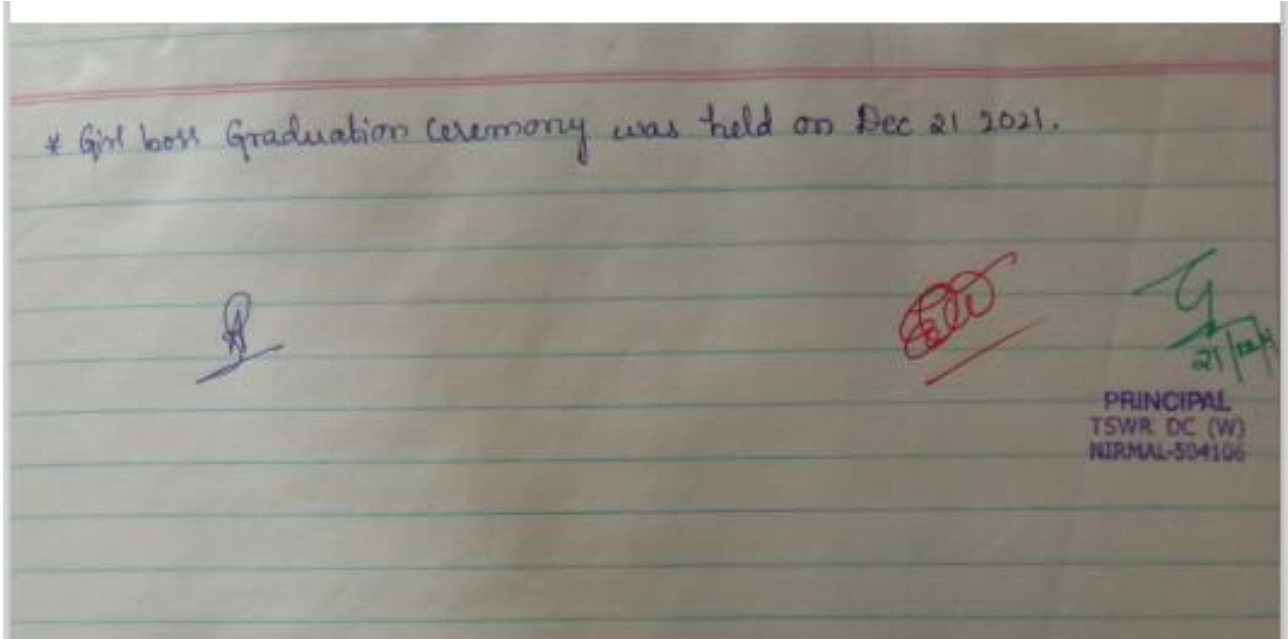 * Girl boss Graduation Ceremony was held on Dec 21 2021.
21/12/21
PRINCIPAL
TSWR DC (W)
NIRMAL-504106